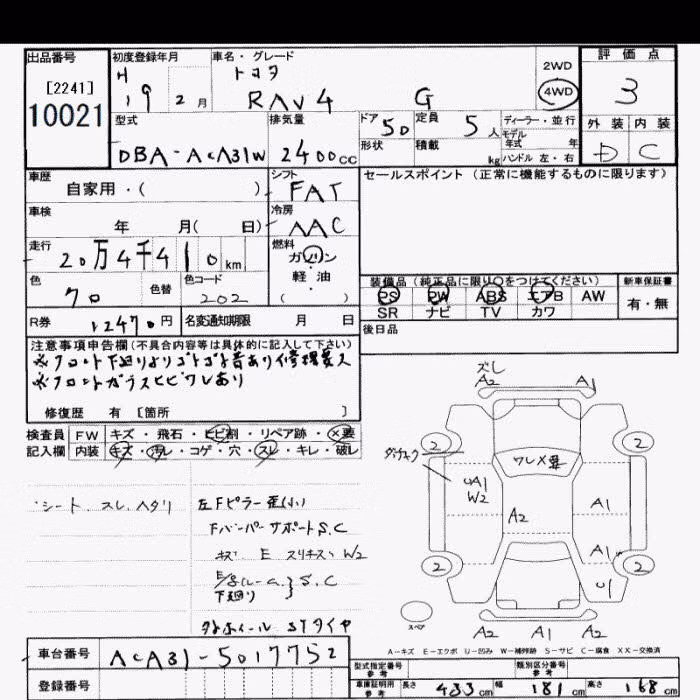 出品番号
[2241]
10021
初度登録年月
H
19 2 月
車名・グレード
トヨタ
RAV4 G
2WD
4WD
評価点
3
外装 内装
D C
型式
DBA-ACA31W
排気量
2400cc
ドア
5D
定員
5人
形状
積載
kg
ディーラー・並行
モデル
年式 年
ハンドル 左・右
車歴
自家用・( )
シフト
FAT
セールスポイント(正常に機能するものに限ります)
車検
年 月( 日)
冷房
AAC
走行
20万4千410km
燃料
ガソリン
軽油
( )
色
クロ
色替
色コード
202
装備品(純正品に限り○をつけてください)
PS PW ABS エアB AW
SR ナビ TV カワ
新車保証書
有・無
R券
12470円
名変通知期限 月 日
後日品
注意事項申告欄(不具合内容等は具体的に記入して下さい)
※フロント下廻りよりゴトゴト音あり修理要ス
※フロントガラスヒビワレあり
修復歴 有 [箇所 ]
検査員
記入欄
FW キズ・飛石・ヒビ割・リペア跡・×要
内装 キズ・汚レ・コゲ・穴・スレ・キレ・破レ
シート スレ、ヘタリ
左Fピラー歪(小)
Fバンパーサポート S.C
キズ E スリキズ W2
S.C
下廻り
ホイール STタイヤ
ズレ
A2 A1
2 2
ワレ×要
UA1
W2
A2
A1
A1
2 2
U1
スペア
A2 A1 A2
A-キズ E-エクボ U-凹み W-補修跡 S-サビ C-腐食 XX-交換済
車台番号
ACA31-5017752
登録番号
型式指定番号
参考
類別区分番号
参考
車庫証明用
参考
長さ 433cm 幅 181cm 高さ 168cm